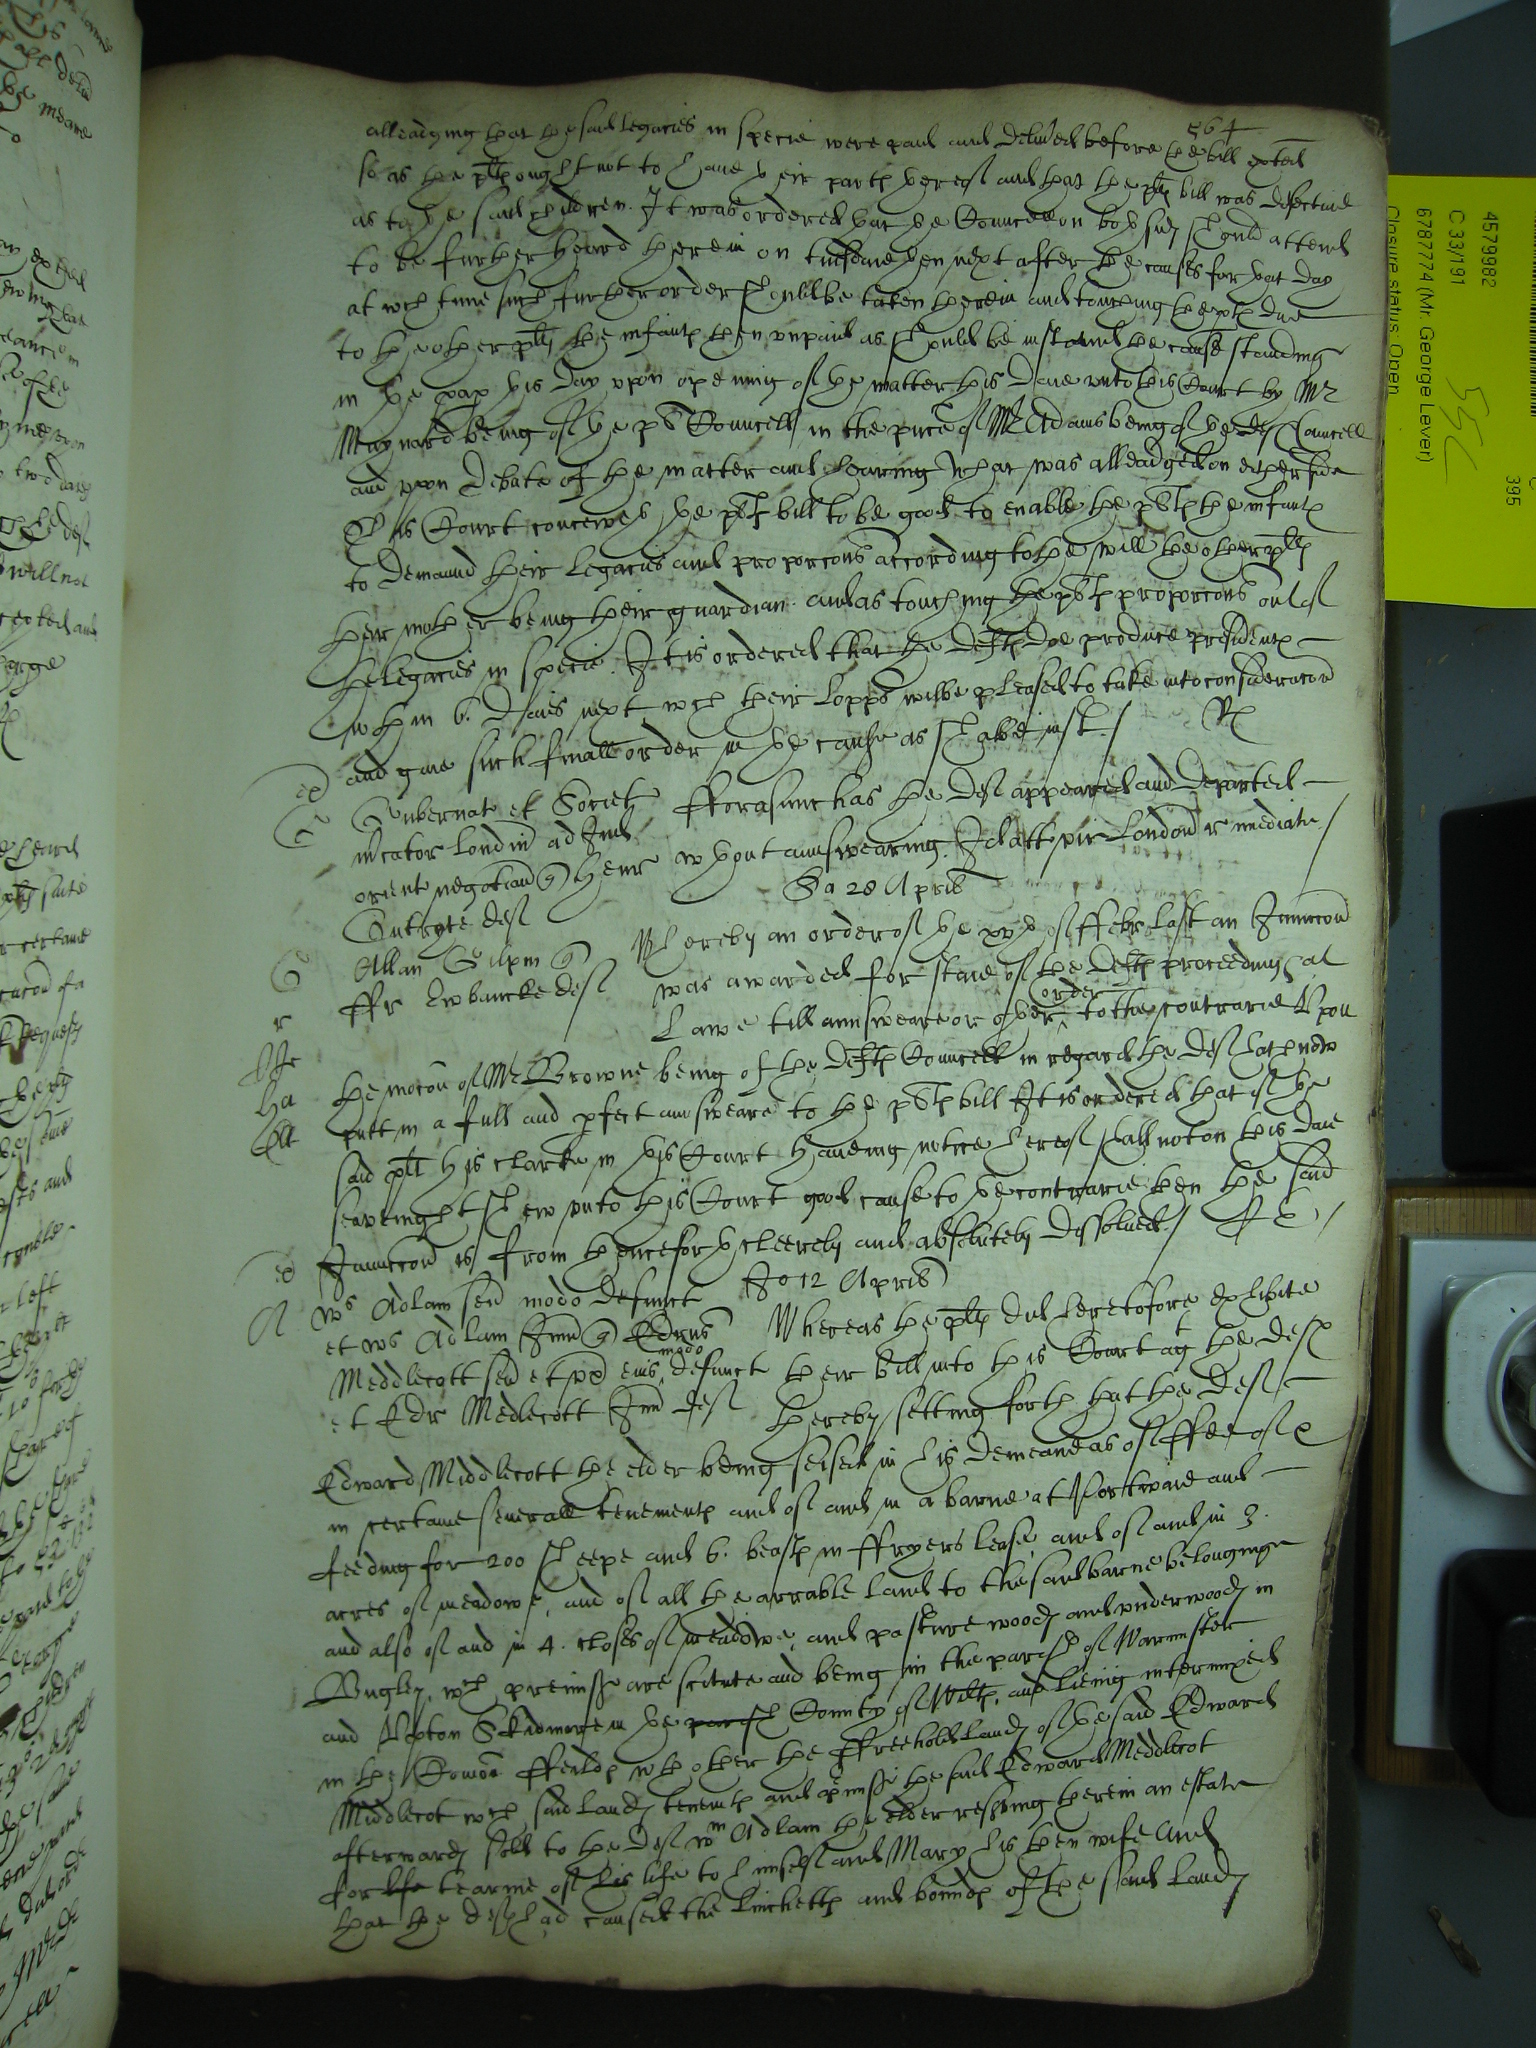 564
alleadging that the said legacies in specie were paid and deliũed before the bill exħted
so as the pltẽs ought not to have their parts thereof and that the pltẽs bill was defective
as to the said children. It was ordered that the Councell on both sides should attend
to be further heard herein on tuesdaie then next after the causes for that day
at wch tyme such further order should be taken herein and touching the due
to the other pltẽs the infants then unpaid as should be iust and the cause standing
in the pap this day upon openning of the matter this daie unto this Court by Mr
Maynard being of the pts Councell in the pñce of Mr Adams being of the defts Councell
and upon debate of the matter and hearing what was alleadged on either side
This Court conceiveth the plts bill to be good to enable the plts the infants
to demaund their legacies and proporcons according to the will the other pltẽs
their mother being their guardian. and as touching the plts proporcons out of
the legacies in specie. It is ordered that the defts doe produce presidents
wthin 6. daies next wch their Lopps wilbe pleased to take into consideracon
and give such finall order in the cause as shalbe iust. / Rh
Gubernat et Societ
mcator Londin ad Ind
orient negotian qt Henr
def
fforasmuch as the def appeared and departed
wthout aunswearing. Id att vic London r imediate /
Sa 28 Aprill
Allan Gilpin qt
ffr Ewbancke def
Whereby an order of the xvth of ffebr last an Iniunccon
was awarded for staie of the defts proceedings at
Lawe till aunsweare or other order to the contrarie Upon
the mocon of Mr Browne being of the defts Councell in regard the def hath now
putt in a full and pfect aunsweare to the plts bill It is ordered that if the
said plt his clarke in this Court haveing notice hereof shall not on this daie
seavenight shew unto this Court good cause to the contrarie then the said
Iniunccon is from thenceforth cleerely and absolutely dissolved. /
Jo 12 Aprill
Ws Adlam sen modo defunct
et Ws Adlam Iun qt Edrus
Meddlecott sen et ux eius modo defunct
et Edr Medlecott Iun def
Whereas the plts did heretofore exhibite
their bill into this Court agt the defs
thereby setting forth that the def
Edward Middlecott the elder being seised in his demeane as of ffee of &
in certaine severall tenements and of and in a barne at Portwaie and
feeding for 200 sheepe and 6. beasts in ffryers lease, and of and in 3.
acres of meadowe, and of all the arrable land to the said barne belonginge
and also of and in 4. closes of meadowe, and pasture woods and underwoods in
Bugley, wch premisses are scituate and being in the parish of Warmister
and Upton Skidmore in the parish County of Wiltes, and lieing intermixed
in the Comon ffeilds wth other the ffreehold lands of the said Edward
Middlecot wch said lands tenemts and pmisses the said Edward Meddlecot
afterwards sold to the def Wm Adlam the elder reserving therein an estate
for life tearme of his life to himself and Mary his then wife And
that the def had caused the lincketts and bounds of the said lands
4579982
C 33/191
6787774 (Mr. George Lever)
Closure status: Open
55C
395